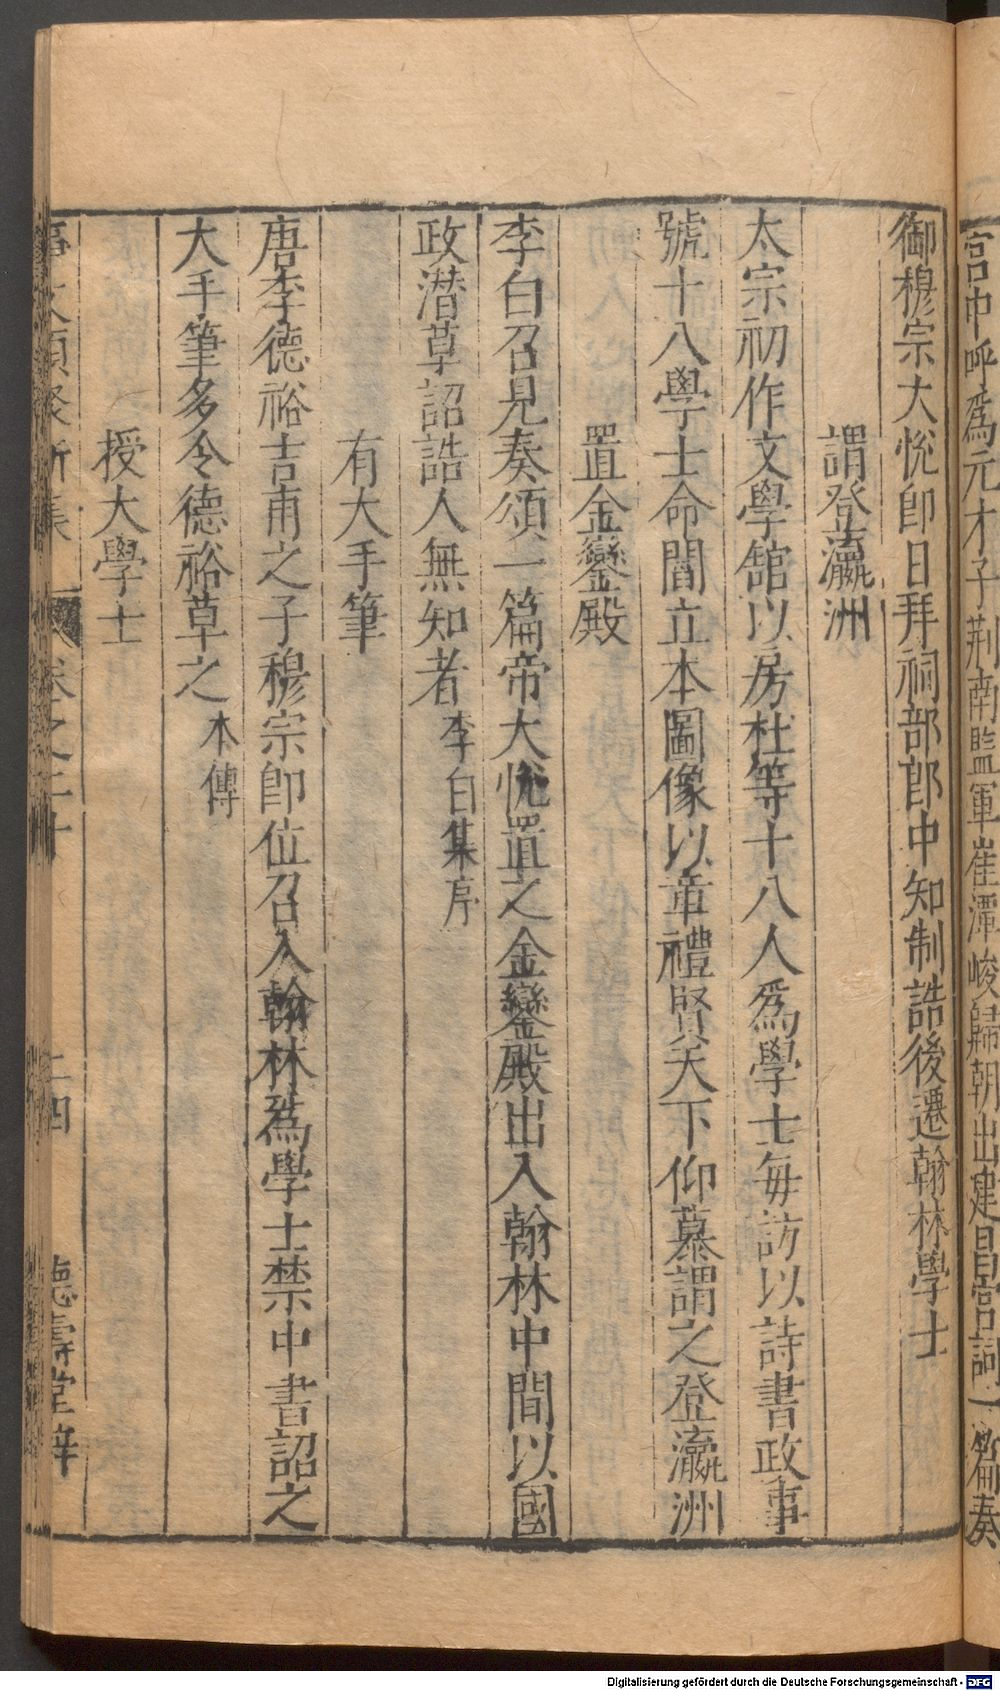 宫中呼爲元才子荆南監軍崔潭峻歸朝出建昌宫詞一篇奏
御穆宗大悅即日拜祠部郎中知制誥後遷翰林學士
謂登瀛洲
太宗初作文學館以房杜等十八人爲學士每訪以詩書政事
號十八學士命閻立本圖像以章禮賢天下仰慕謂之登瀛洲
置金鑾殿
李白召見奏頌一篇帝大悅置之金鑾殿出入翰林中間以國
政潜草詔誥人無知者李白集序
有大手筆
唐李德裕吉甫之子穆宗即位召入翰林爲學士禁中書詔之
大手筆多令德裕草之本傳
授大學士
事文類聚新集 卷之二十 二四 德壽堂梓
Digitalisierung gefördert durch die Deutsche Forschungsgemeinschaft - DFG